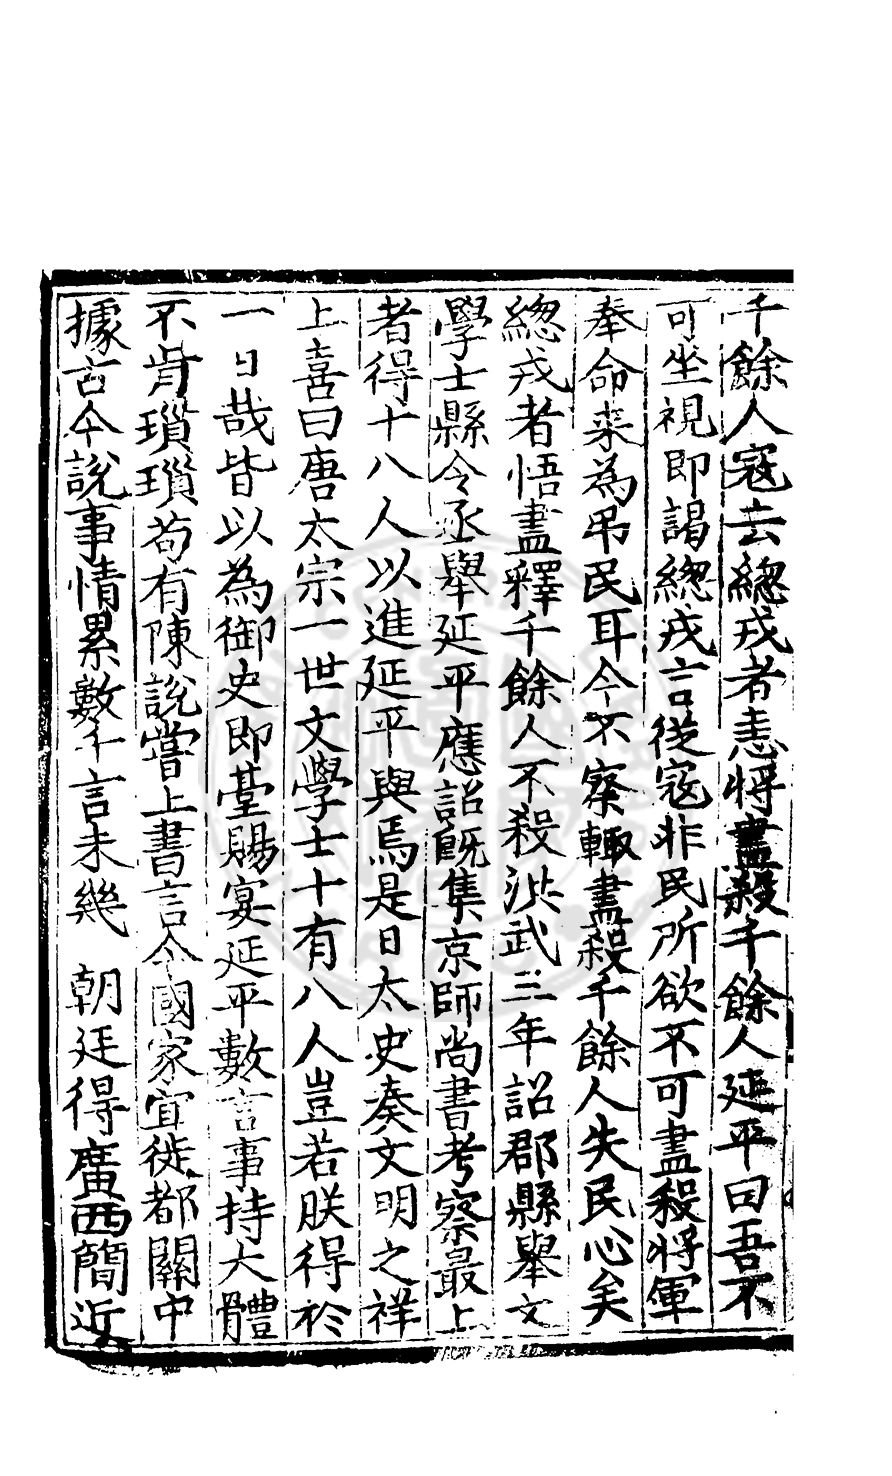 千餘人寇去緫戎者恚將盡殺千餘人延平曰吾不
可坐視即謁緫戎言從寇非民所欲不可盡殺將軍
奉命来為吊民耳今不察輙盡殺千餘人失民心矣
緫戎者悟盡釋千餘人不殺洪武三年詔郡縣舉文
學士縣令丞舉延平應詔旣集京師尚書考察最上
者得十八人以進延平與焉是日太史奏文明之祥
上喜曰唐太宗一世文學士十有八人豈若朕得於
一日哉皆以為御史即臺賜宴延平數言事持大體
不肯瑣瑣苟有陳說嘗上書言今國家宜徙都關中
據古今說事情累數千言未幾 朝廷得廣西簡近